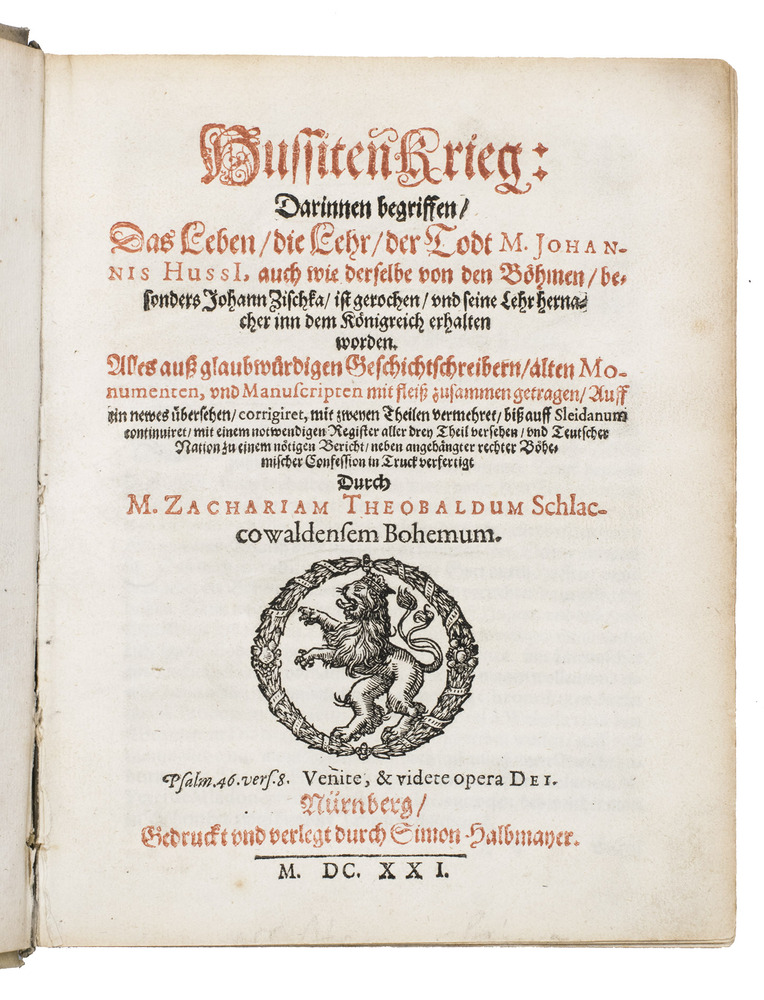 Hussiten Krieg:
Darinnen begriffen/
Das Leben/die Lehr/der Todt M. JOHAN-
NIS HUSSI, auch wie derselbe von den Böhmen/be-
sonders Johann Zischka/ist gerochen/vnd seine Lehr herna-
cher inn dem Königreich erhalten
worden.
Alles auß glaubwürdigen Geschichtschreibern/alten Mo-
numenten, vnd Manuscripten mit fleiß zusammen getragen/Auff
ein newes übersehen/corrigiret, mit zweyen Theilen vermehret/biß auff Sleidanum
continuiret/mit einem notwendigen Register aller drey Theil versehen/vnd Teutscher
Nation zu einem nötigen Bericht/neben angehängter rechter Böhe-
mischer Confession in Truck verfertigt
Durch
M. ZACHARIAM THEOBALDUM Schlac-
cowaldensem Bohemum.
Psalm.46.vers.8. Venite, & videte opera DEI.
Nürnberg/
Gedruckt vnd verlegt durch Simon Halbmayer.
M. DC. XXI.